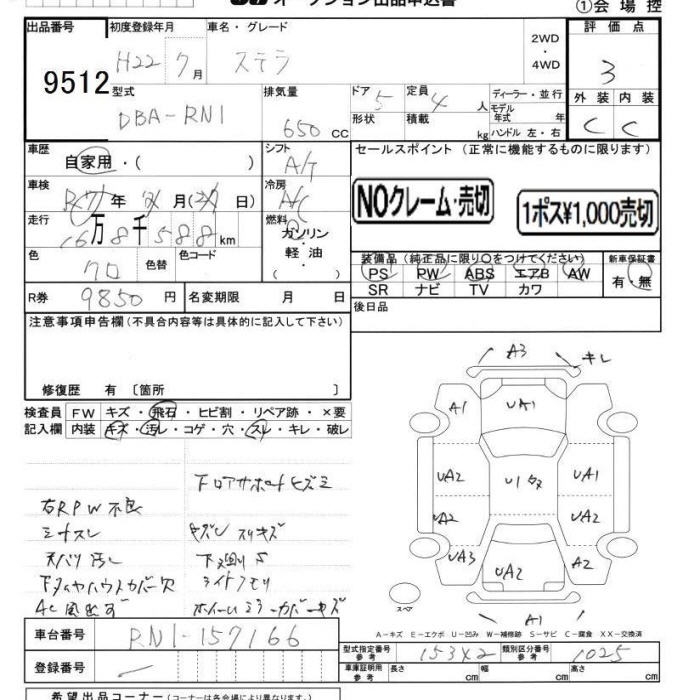 オークション出品申込書
①会場控
出品番号 9512
初度登録年月 H22 7月
車名・グレード ステラ
2WD・4WD
評価点 3
外装 C 内装 C
型式 DBA-RN1
排気量 650 CC
ドア 5 定員 4人
形状 積載 kg
ディーラー・並行
モデル年式 年式
ハンドル 左・右
車歴 自家用・( )
シフト A/T
セールスポイント (正常に機能するものに限ります)
NOクレーム・売切
1ポス¥1,000売切
車検 年 月( 日)
冷房 A/C
走行 16万8千588km
燃料 ガソリン・軽油( )
色 クロ 色替 色コード
装備品 (純正品に限り〇をつけてください)
PS PW ABS エアB AW
SR ナビ TV カワ
新車保証書 有・無
R券 9850円 名変期限 月 日
後日品
注意事項申告欄 (不具合内容等は具体的に記入して下さい)
修復歴 有 〔箇所 〕
検査員記入欄
FW キズ・飛石・ヒビ割・リペア跡・×要
内装 キズ・汚レ・コゲ・穴・スレ・キレ・破レ
下ロアサポートヒズミ
右RPW不良
シートスレ
天バリ汚レ 下廻りS
ライトクモリ
A3 キレ
A1 UA1
UA2 U1タメ UA1
UA2 UA2
UA3 UA2 A2
A1
スペア
A-キズ E-エクボ U-凹み W-補修跡 S-サビ C-腐食 XX-交換済
車台番号 RN1-157166
登録番号
型式指定番号 参考 15342 類別区分番号 参考 1025
車庫証明用 参考 長さ cm 幅 cm 高さ cm
希望出品コーナー (コーナーは各会場により異なります。)